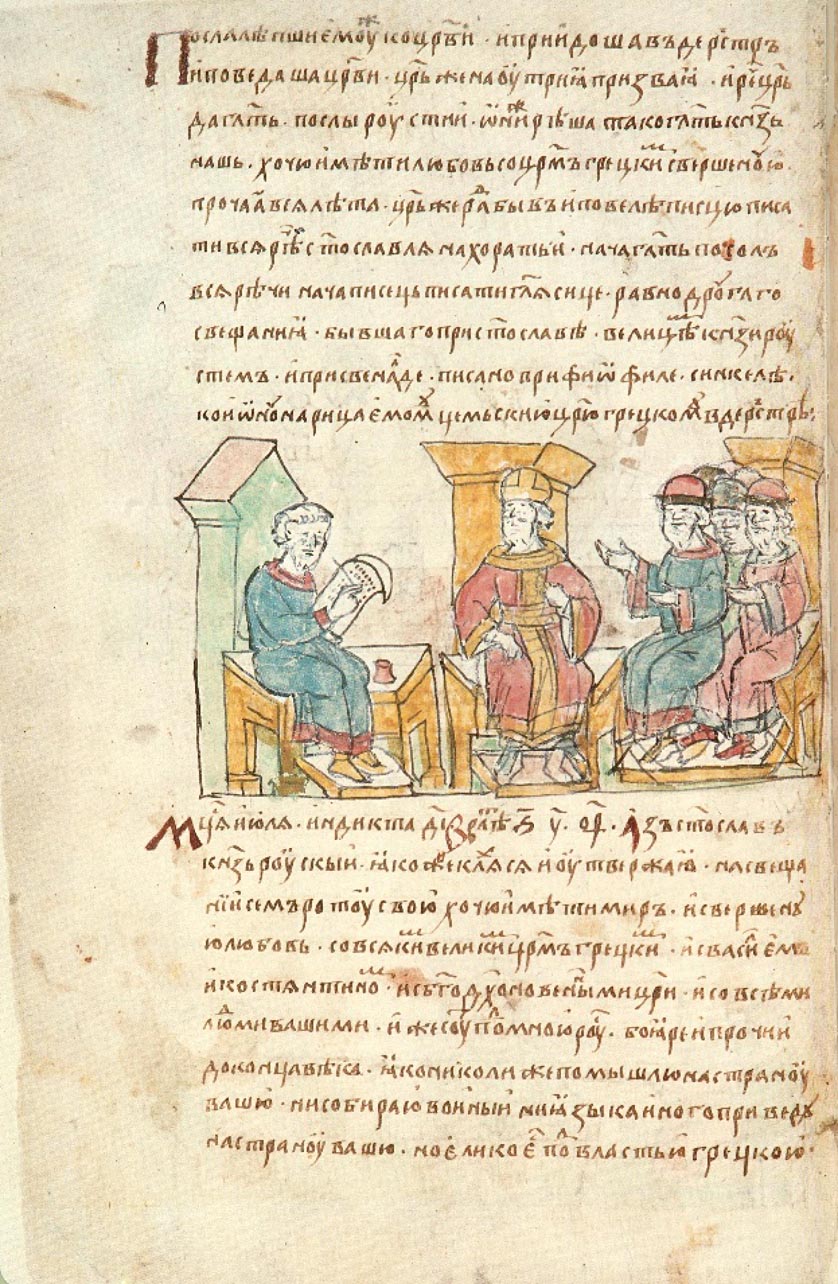 Пославъ лѣпшиѣ моужи ко цр҃ви · и приидоша въ дерьстръ
и поведаша цр҃ви · цр҃ь же на оутрия призва я · и реч҇ цр҃ь
да гл҃ть · посли роустии · ѡни же рѣша тако гл҃ть кн҃зь
нашь · хочю имѣти любовь со цр҃мъ грецким свершеноую
прочая вся лѣта · цр҃ь же рад бывъ и повелѣ писцю писа
ти вся рѣч҇ ст҃ославля на хоратьи · нача гл҃ть посолъ
вся рѣчи нача писець писати гл҃я сице · равно дроугаго
свещания · бывшаго при ст҃ославѣ · велицѣмь кн҃зи роу
стемъ · и при свеналде · писано при фиѡфиле · синкелѣ ·
ко иѡноу нарицаемомоу цемьскию цр҃ю грецкомоу в дерьстрѣ ·
Мц҃я июля · индикта д҃ı в лѣт ҂ѕ҃ у҃ о҃ф · Азъ ст҃ославъ
кн҃зь роускый · якоже кляхся и оутвержаю · на свеща
нии семъ ротоу свою хочю имѣти миръ · и свершену
ю любовь · со всякимь великимь цр҃мъ грецким · и с васильем
и костянтином · и съ б҃годх҃новеными цр҃и · и со всѣми
людми вашими · и иже соуть подо мною роусь · бояре и прочии
до конца вѣка · яко николи же помышлю на страноу
вашю · ни собираю вои ни языка иного приведу
на страноу вашю · но елико ес҇ под властью грецкою ·